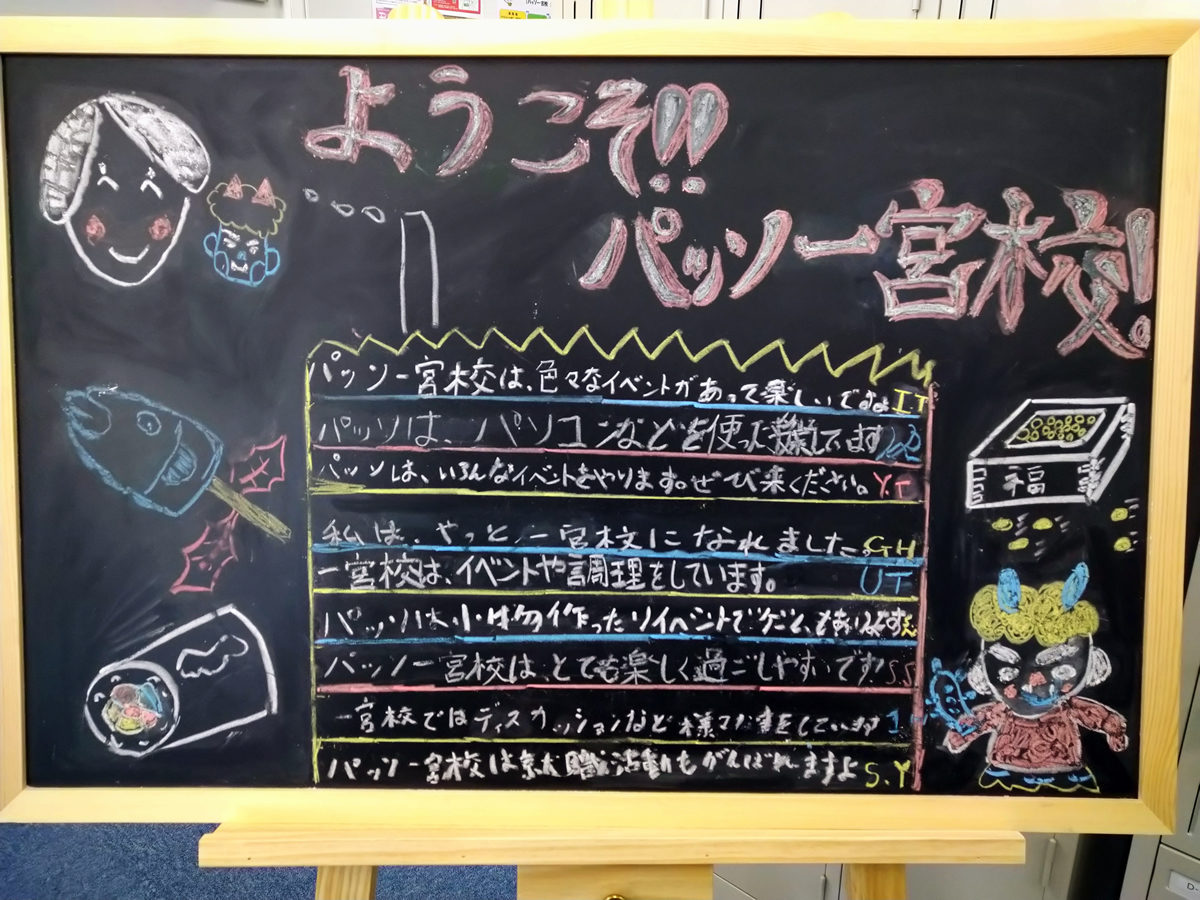 ようこそ!!
パッソ一宮校!。
パッソ一宮校は、色々なイベントがあって楽しいですよ I.T
パッソは、パソコンなどを使った授業しています
パッソは、いろんなイベントをやります。ぜひ来ください。 Y.T
私は、やっと一宮校になれました。 G.H
一宮校は、イベントや調理をしています。 U T
パッソは小物作ったりイベントで
パッソ一宮校は、とても楽しく過ごしやすいです! S.S
一宮校ではディスカッションなど様々な事をしています 1
パッソ一宮校は就職活動もがんばれますよ S.Y
福